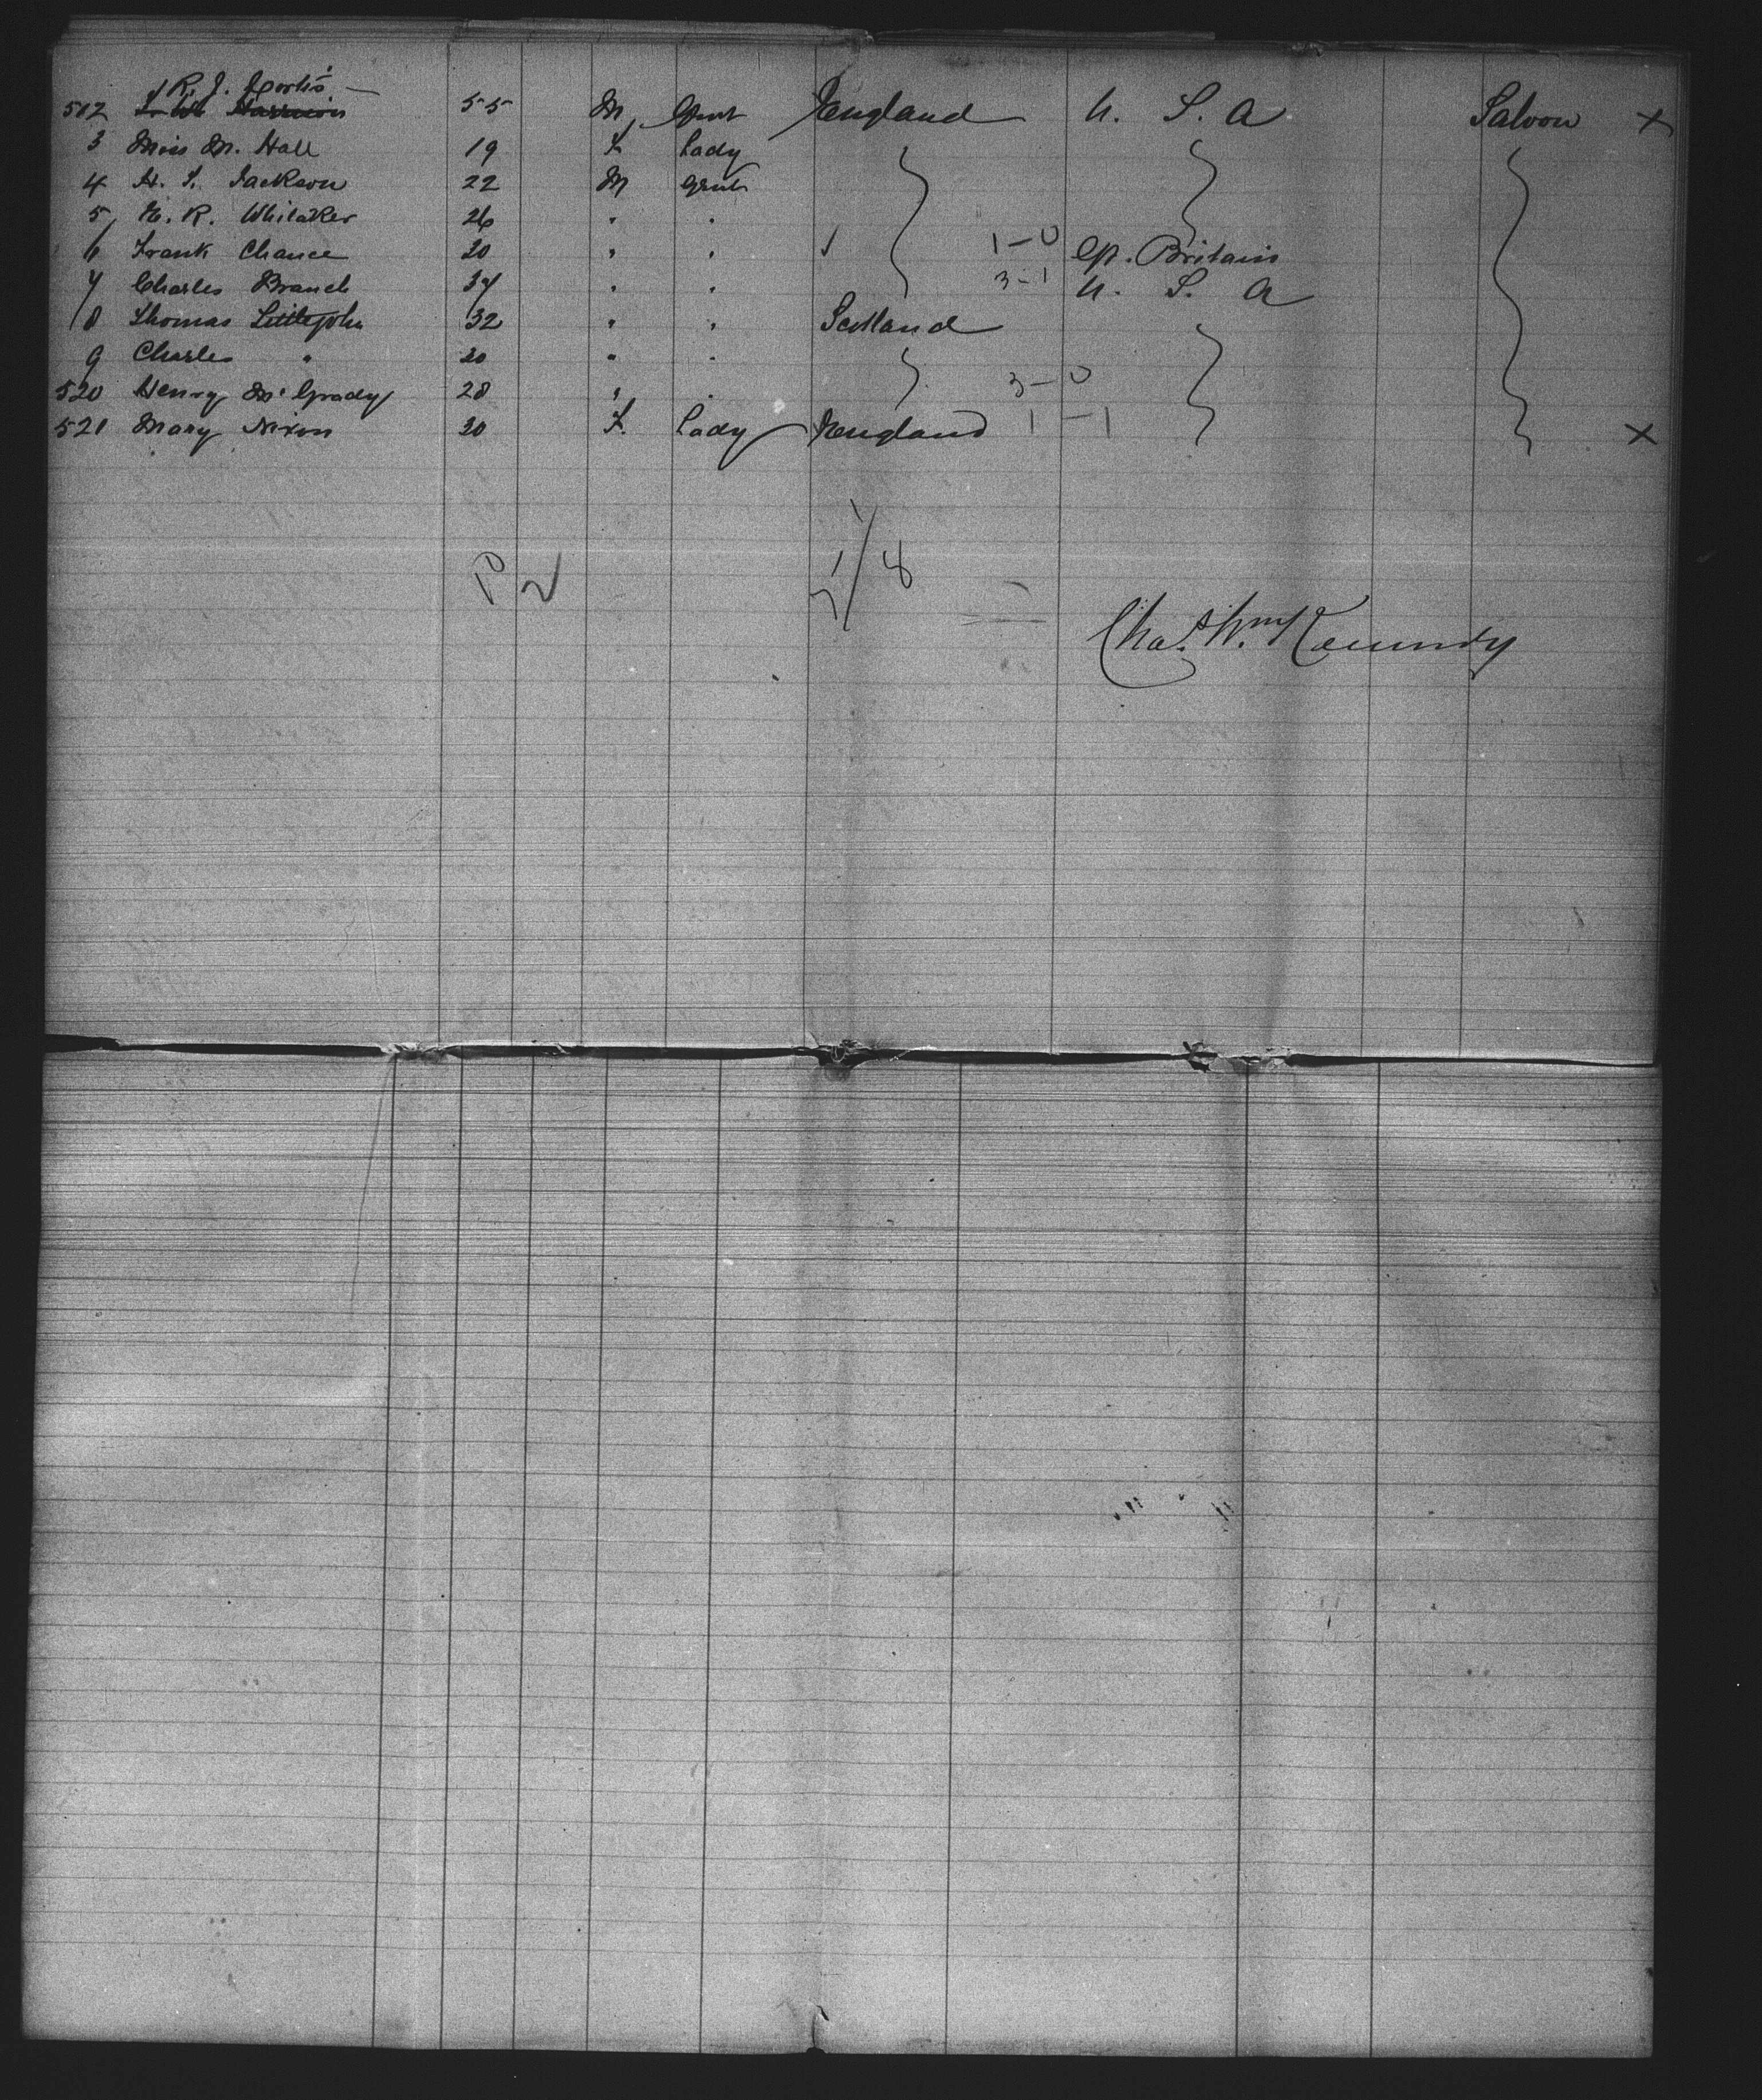 R. J. Cortis —
512 Harrison 55 M Gent England U. S. A Saloon X
3 Miss M. Hall 19 F Lady
4 H. S. Jackson 22 M Gent
5 E. R. Whitaker 26 " "
6 Frank Chance 20 " " 1-0 Gt. Britain
7 Charles Branch 34 " " 3-1 U. S. A
8 Thomas Littlejohn 32 " " Scotland
9 Charles " 20 " "
520 Henry McGrady 28 " 3-0
521 Mary Nixon 20 F. Lady England 1-1 X
P 2
Chas. Wm Kennedy